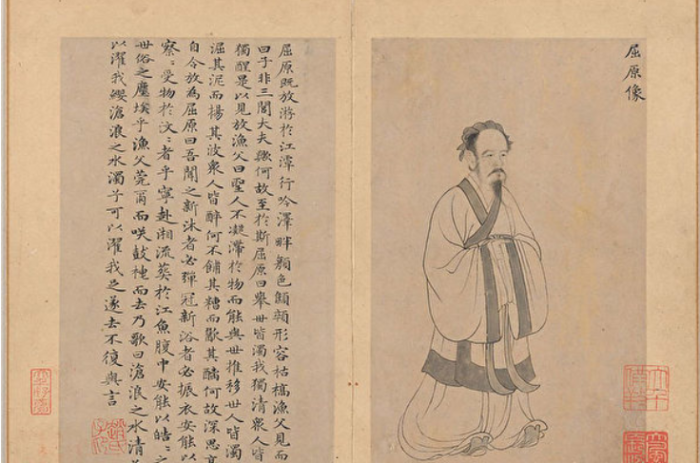 屈原像
屈原既放游於江潭行吟澤畔顏色顦顇形容枯槁漁父見而
曰子非三閭大夫歟何故至於斯屈原曰舉世皆濁我獨清衆人皆
獨醒是以見放漁父曰聖人不凝滯於物而能與世推移世人皆濁
淈其泥而揚其波衆人皆醉何不餔其糟而歠其醨何故深思高
自令放為屈原曰吾聞之新沐者必彈冠新浴者必振衣安能以
察〻受物於汶〻者乎寧赴湘流葬於江魚腹中安能以皓〻之
世俗之塵埃乎漁父莞爾而咲鼓枻而去乃歌曰滄浪之水清
以濯我纓滄浪之水濁兮可以濯我足遂去不復與言